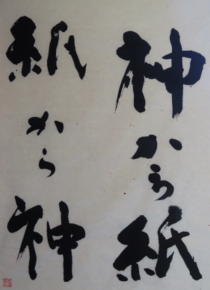 神から紙
紙から神